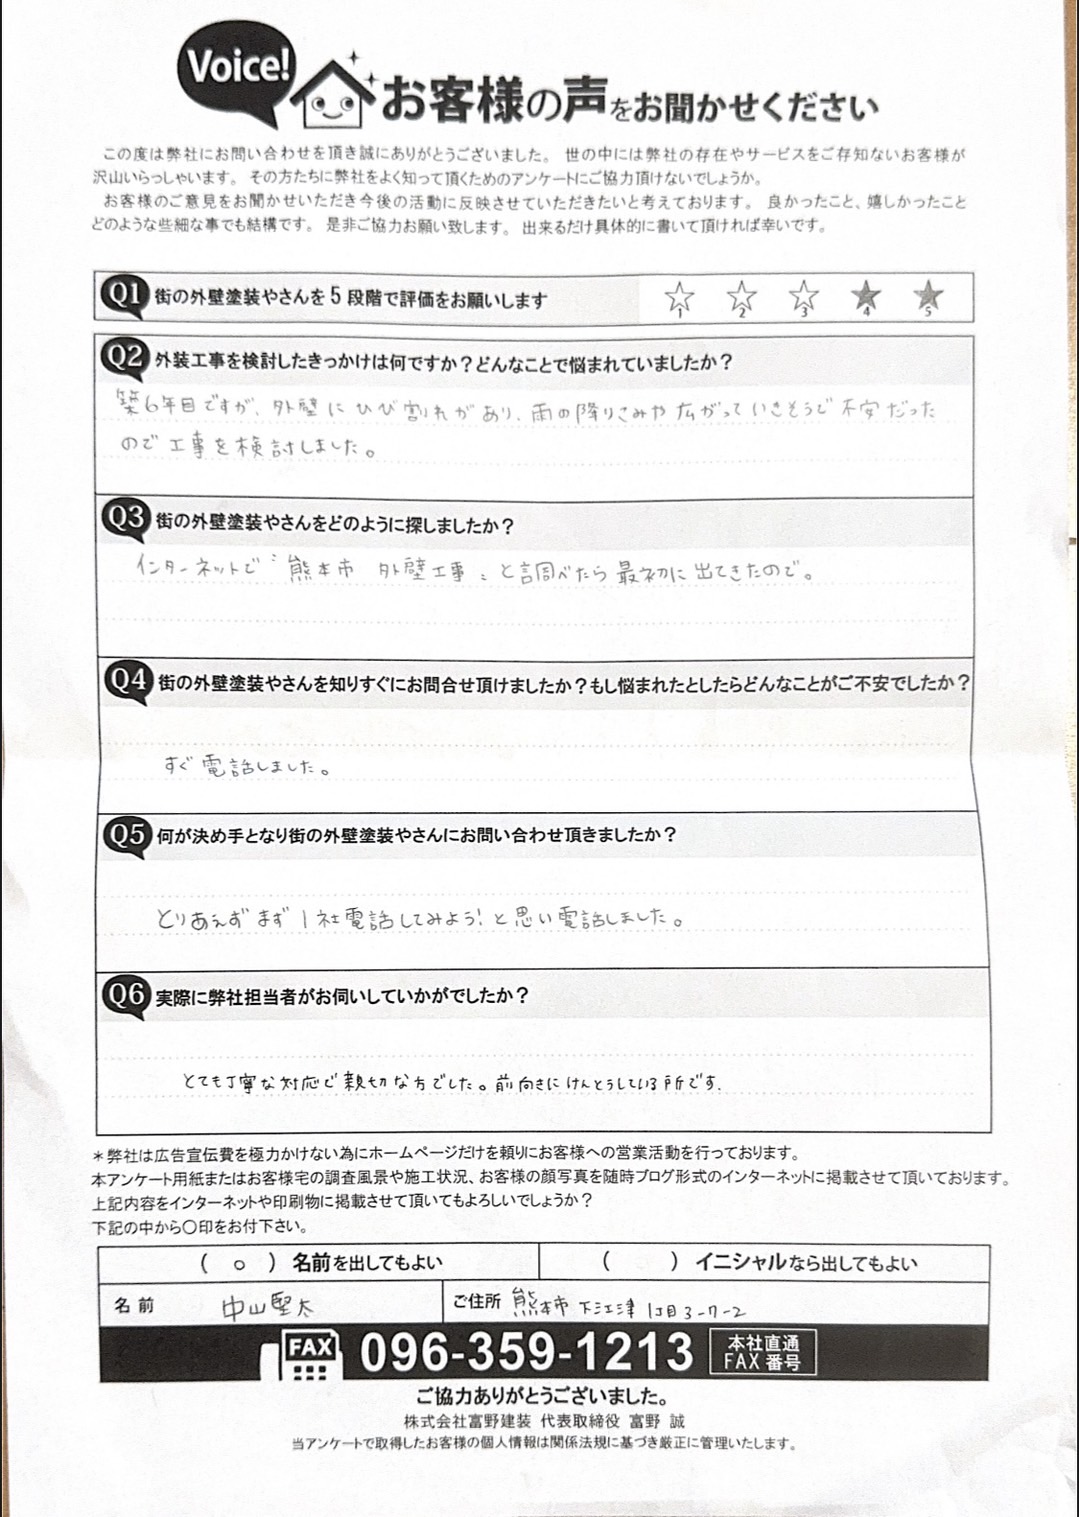 Voice!
お客様の声をお聞かせください
この度は弊社にお問い合わせを頂き誠にありがとうございました。 世の中には弊社の存在やサービスをご存知ないお客様が
沢山いらっしゃいます。 その方たちに弊社をよく知って頂くためのアンケートにご協力頂けないでしょうか。
お客様のご意見をお聞かせいただき今後の活動に反映させていただきたいと考えております。 良かったこと、嬉しかったこと
どのような些細な事でも結構です。 是非ご協力お願い致します。 出来るだけ具体的に書いて頂ければ幸いです。
Q1 街の外壁塗装やさんを5段階で評価をお願いします 1 2 3 4 5
Q2 外装工事を検討したきっかけは何ですか？どんなことで悩まれていましたか？
築6年目ですが、外壁にひび割れがあり、雨の降りこみや広がっていきそうで不安だった
ので工事を検討しました。
Q3 街の外壁塗装やさんをどのように探しましたか？
インターネットで〝熊本市 外壁工事〟と調べたら最初に出てきたので。
Q4 街の外壁塗装やさんを知りすぐにお問合せ頂けましたか？もし悩まれたとしたらどんなことがご不安でしたか？
すぐ電話しました。
Q5 何が決め手となり街の外壁塗装やさんにお問い合わせ頂きましたか？
とりあえずまず1社電話してみよう！と思い電話しました。
Q6 実際に弊社担当者がお伺いしていかがでしたか？
とても丁寧な対応で親切な方でした。前向きにけんとうしている所です.
＊弊社は広告宣伝費を極力かけない為にホームページだけを頼りにお客様への営業活動を行っております。
本アンケート用紙またはお客様宅の調査風景や施工状況、お客様の顔写真を随時ブログ形式のインターネットに掲載させて頂いております。
上記内容をインターネットや印刷物に掲載させて頂いてもよろしいでしょうか？
下記の中から〇印をお付下さい。
（ ○ ）名前を出してもよい （ ）イニシャルなら出してもよい
名前 中山堅太 ご住所 熊本市下江津1丁目3-7-2
FAX 096-359-1213 本社直通
FAX番号
ご協力ありがとうございました。
株式会社富野建装 代表取締役 富野 誠
当アンケートで取得したお客様の個人情報は関係法規に基づき厳正に管理いたします。